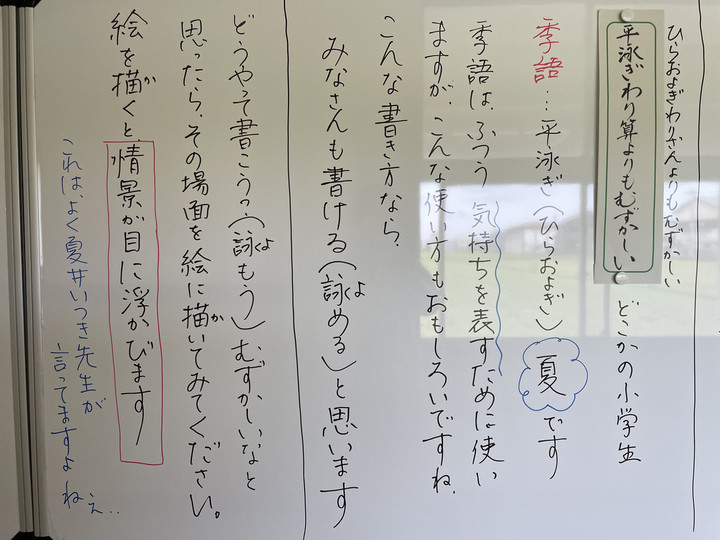 ひらおよぎわりざんよりもむずかしい
平泳ぎわり算よりもむずかしい
どこかの小学生
季語…平泳ぎ(ひらおよぎ) 夏です
季語は、ふつう 気持ちを表すために使い
ますが、こんな使い方もおもしろいですね。
こんな書き方なら、
みなさんも書ける(詠める)と思います
よ
どうやって書こう?(詠もう)むずかしいなと
よ
思ったら、その場面を絵に描いてみてください。
か
絵を描くと、情景が目に浮かびます
か
これは、よく夏井いつき先生が
言ってますよねぇ..